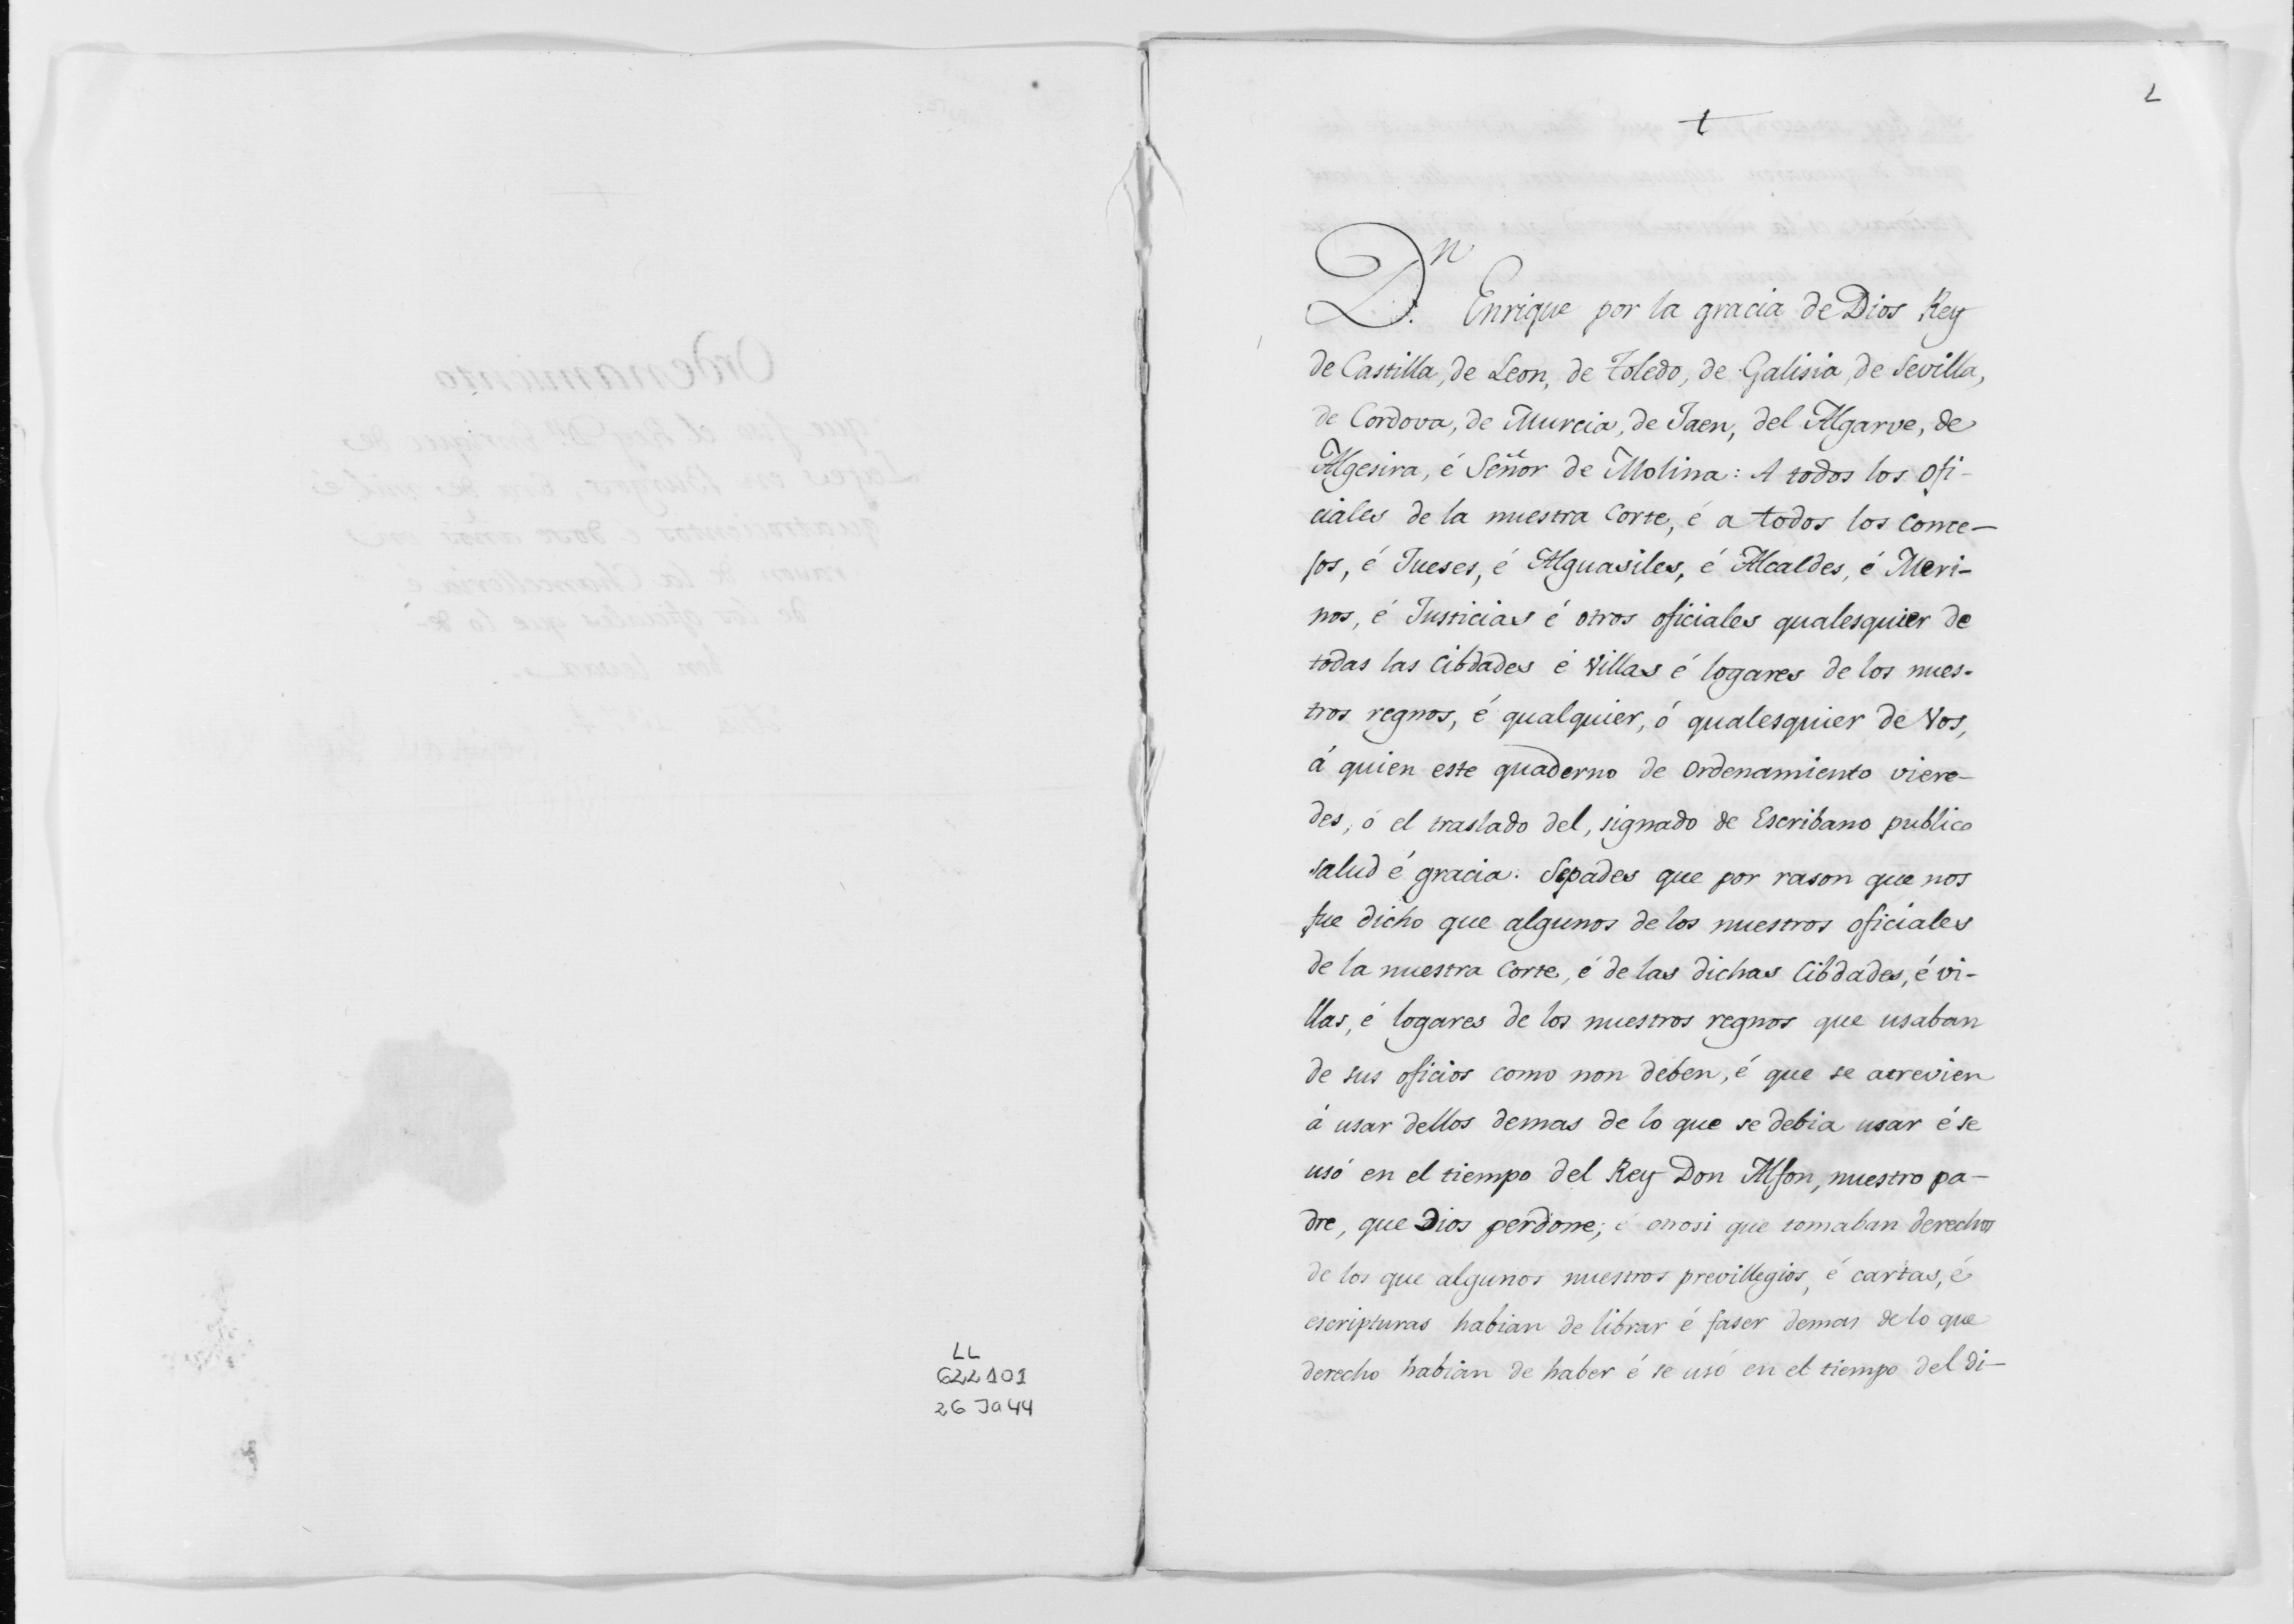 LL
622101
26 Ja44
2
Dn. Enrique por la gracia de Dios Rey
de Castilla, de Leon, de Toledo, de Galisia, de Sevilla,
de Cordova, de Murcia, de Jaen, del Algarve, de
Algesira, é Señor de Molina: A todos los ofi-
ciales de la nuestra Corte, é a todos los conce-
jos, é Jueses, é Alguasiles, é Alcaldes, é Meri-
nos, é Justicias é otros oficiales qualesquier de
todas las Cibdades é Villas é logares de los nues-
tros regnos, é qualquier, ó qualesquier de Vos,
á quien este quaderno de Ordenamiento viere-
des, ó el traslado del, signado de Escribano publico
salud é gracia. Sepades que por rason que nos
fue dicho que algunos de los nuestros oficiales
de la nuestra Corte, é de las dichas Cibdades, é vi-
llas, é logares de los nuestros regnos que usaban
de sus oficios como non deben, é que se atrevien
á usar dellos demas de lo que se debia usar é se
usó en el tiempo del Rey Don Alfon, nuestro pa-
dre, que Dios perdone; é otrosi que tomaban derechos
de los que algunos nuestros previllegios, é cartas, é
escripturas habian de librar é faser demas de lo que
derecho habian de haber é se usó en el tiempo del di-